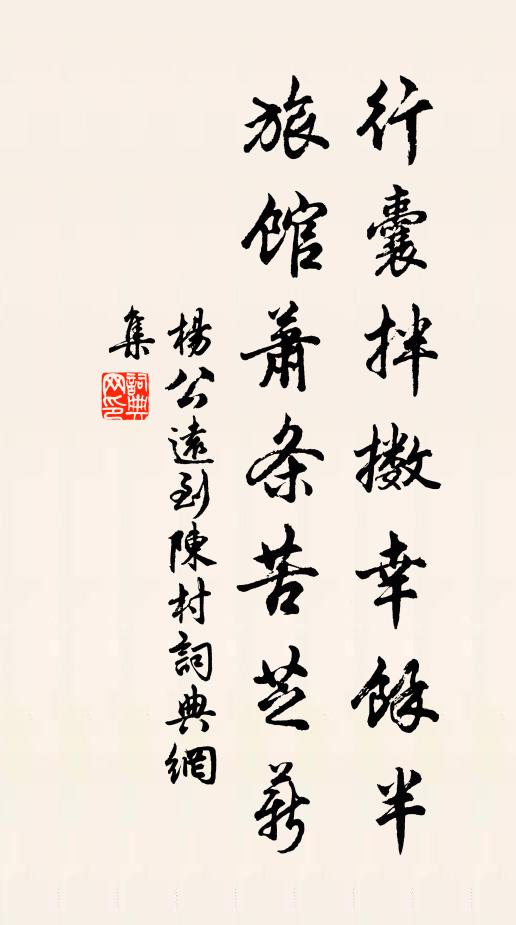 行囊拌擻幸餘半
旅館蕭条苦芝薪
楊公遠到陳村詞典網
集
詞典
网印